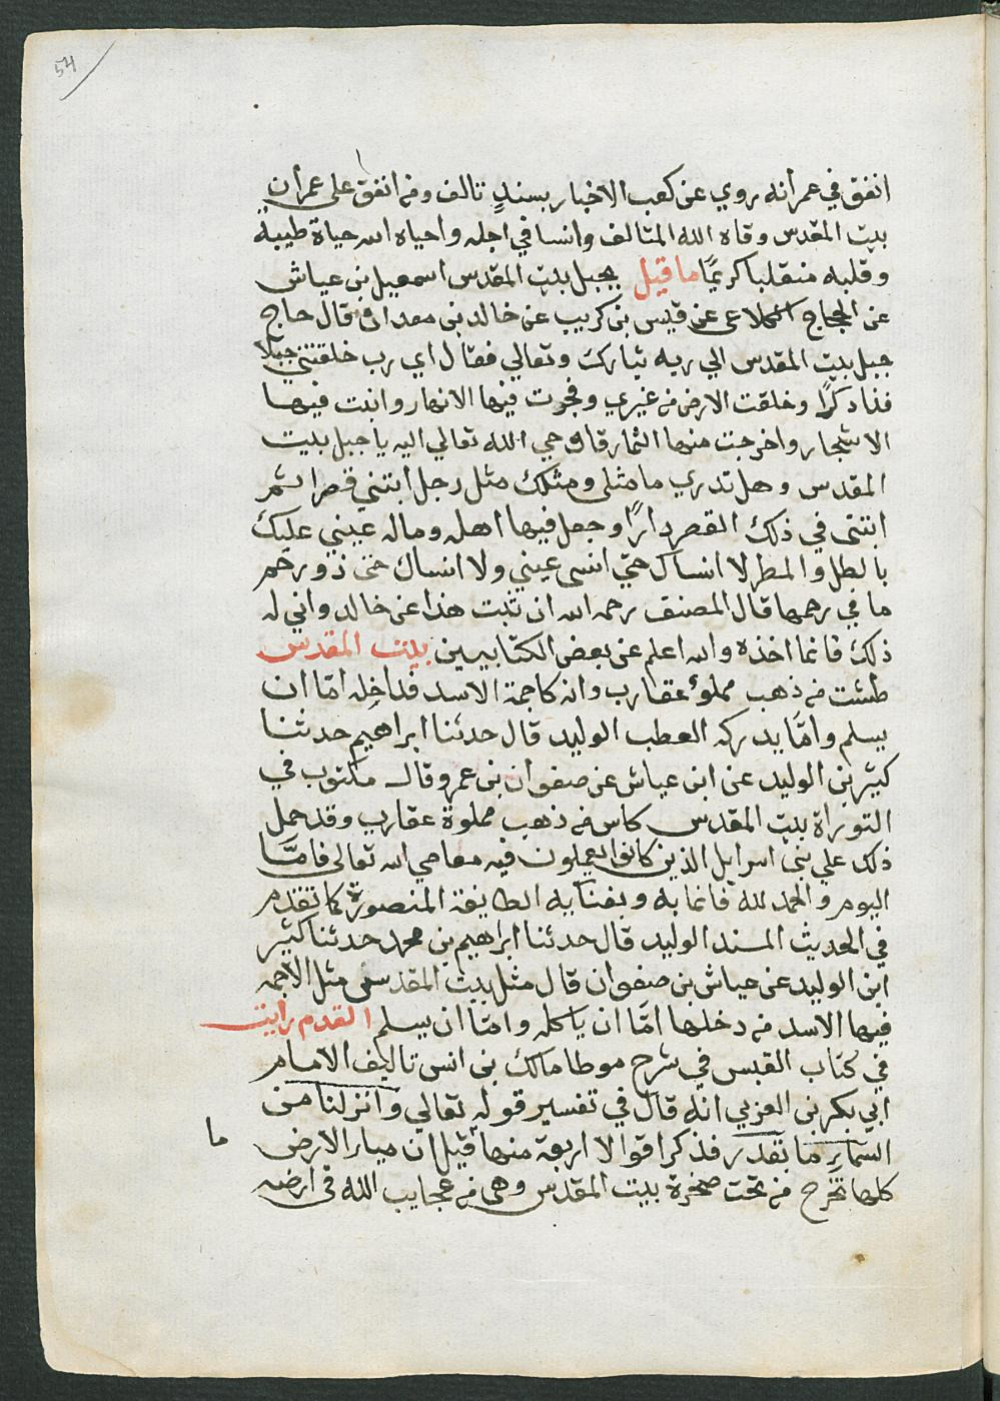 54
انفق في عمرانه روي عن كعب الاخبار بسندٍ تالف ومن انفق على عمران
بيت المقدس وقاه الله المتالف وانسا في اجله واحياه الله حياة طيبة
وقلبه منقلبا كريمًا ما قيل بجبل بيت المقدس اسمعيل بن عياش
عن الحجاج الكلاعى عن قيس بن كريب عن خالد بن معدان قال حاج
جبل بيت المقدس الي ربه تبارك وتعالي فقال اي رب خلقتني جبلا
فذا ذكرًا وخلقت الارض من غيري وفجرت فيها الانهار وانبت فيها
الاشجار واخرجت منها الثمار فاوحي الله تعالي اليه يا جبل بيت
المقدس وهل تدري ما مثلى ومثلك مثل رجل ابتني قصرا ثم
ابتنى في ذلك القصر دارًا وجعل فيها اهله وماله عيني عليك
بالطل والمطر لا انساك حتي انسى عيني ولا انساك حتى ذو رحم
ما في رحمها قال المصنف رحمه الله ان ثبت هذا عن خالد واني له
ذلك فانما اخذه والله اعلم عن بعض الكتابيين بيت المقدس
طشت من ذهب مملوٌ عقارب وانه كاجمة الاسد فداخله امّا ان
يسلم وامّا يدركه العطب الوليد قال حدثنا ابراهيم حدثنا
كثير بن الوليد عن ابن عياش عن صفوان بن عمرو قال مكتوب في
التوراة بيت المقدس كاس من ذهب مملوة عقارب وقد حمل
ذلك علي بنى اسرايل الذين كانوا يعملون فيه معاصي الله تعالى فامّا
اليوم والحمد لله فانما به وبفنايه الطايفة المنصورة كما تقدم
في الحديث المسند الوليد قال حدثنا ابراهيم بن محمد حدثنا كثير
ابن الوليد عن عياش بن صفوان قال مثل بيت المقدس مثل الاجمه
فيها الاسد من دخلها امّا ان ياكله وامّا ان يسلم القدم رايت
في كتاب القبس في شرح موطا مالك بن انس تاليف الامام
ابي بكر بن العربي انه قال في تفسير قوله تعالي وانزلنا من
السّماءِ ما بقدر فذكر اقوالا اربعة منها قيل ان مياه الارض
ما
كلها تخرج من تحت صخرة بيت المقدس وهى من عجايب الله فى ارضه